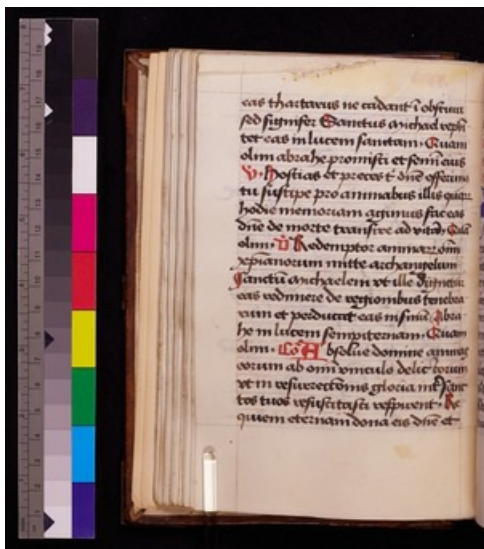 eas thartarus ne cadant ĩ obscura
sed signifer Sanctus michael repñ
tet eas in lucem sanctam. Quam
olim abrahe promisisti et semĩ eius
V. Hostias et preces t̃ dñe offerim
tu suscipe pro animabus illis quaȝ
hodie memoriam agimus fac eas
dñe de morte transire ad vitã. Quã
olim. V̉ Redemptor animarȝ om̃
xp̃ianorum mitte archangelum
Sanctũ michaelem vt ille dignetur
eas redimere de regionibus tenebra
rum et perducat eas in sinũ Abra
he in lucem sempiternam. Quam
olim. Cõ Absolue domine animas
eorum ab omi vinculo delictorum
vt in resurrectionis gloria int̃ sanc
tos tuos resuscitati respirent. Re
quiem eternam dona eis dñe et